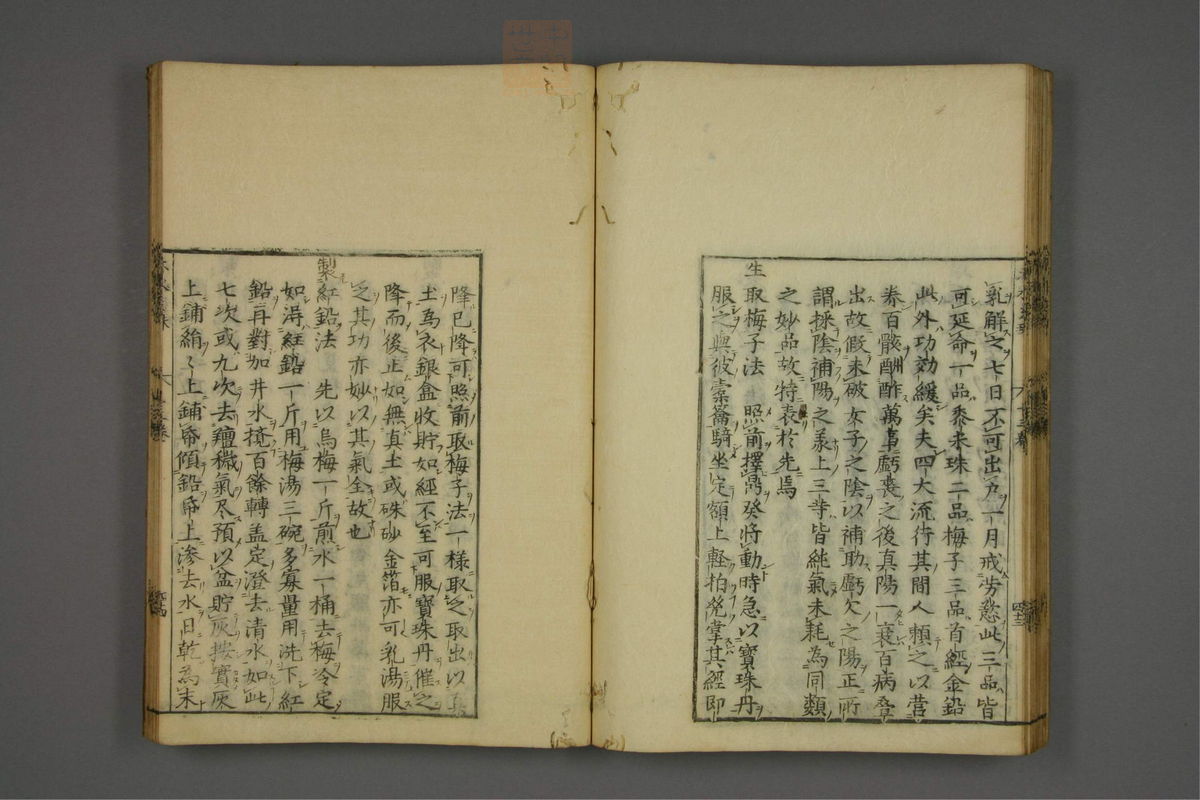 乳解之七日不可出戶一月戒勞慾此三品皆
可延命一品黍米珠二品梅子三品首經金鉛
此外功効緩矣夫四大流行其間人賴之以營
養百骸酬酢萬事虧喪之後真陽一衰百病叠
出故假未破女子之陰以補助虧欠之陽正所
謂採陰補陽之義上三等皆純氣未耗為同類
之妙品故特表於先焉
生取梅子法 照前擇鼎癸將動時急以寶珠丹
服之與彼橐籥騎坐定額上軽拍㒵掌其經即
降已降可照前取梅子法一様取之取出以
土為衣銀盒收貯如經不至可服寶珠丹催之
降而後止如無真土或硃砂金箔亦可乳湯服
之其功亦妙以其氣全故也
製紅鉛法 先以烏梅一斤煎水一桶去梅冷定
如淂紅鉛一斤用梅湯三碗多寡量用洗下紅
鉛再對加井水攪百餘轉盖定澄去清水如此
七次或九次去羶穢氣尽預以盆貯灰按實灰
上鋪絹〻上鋪帋傾鉛帋上滲去水日乾為末